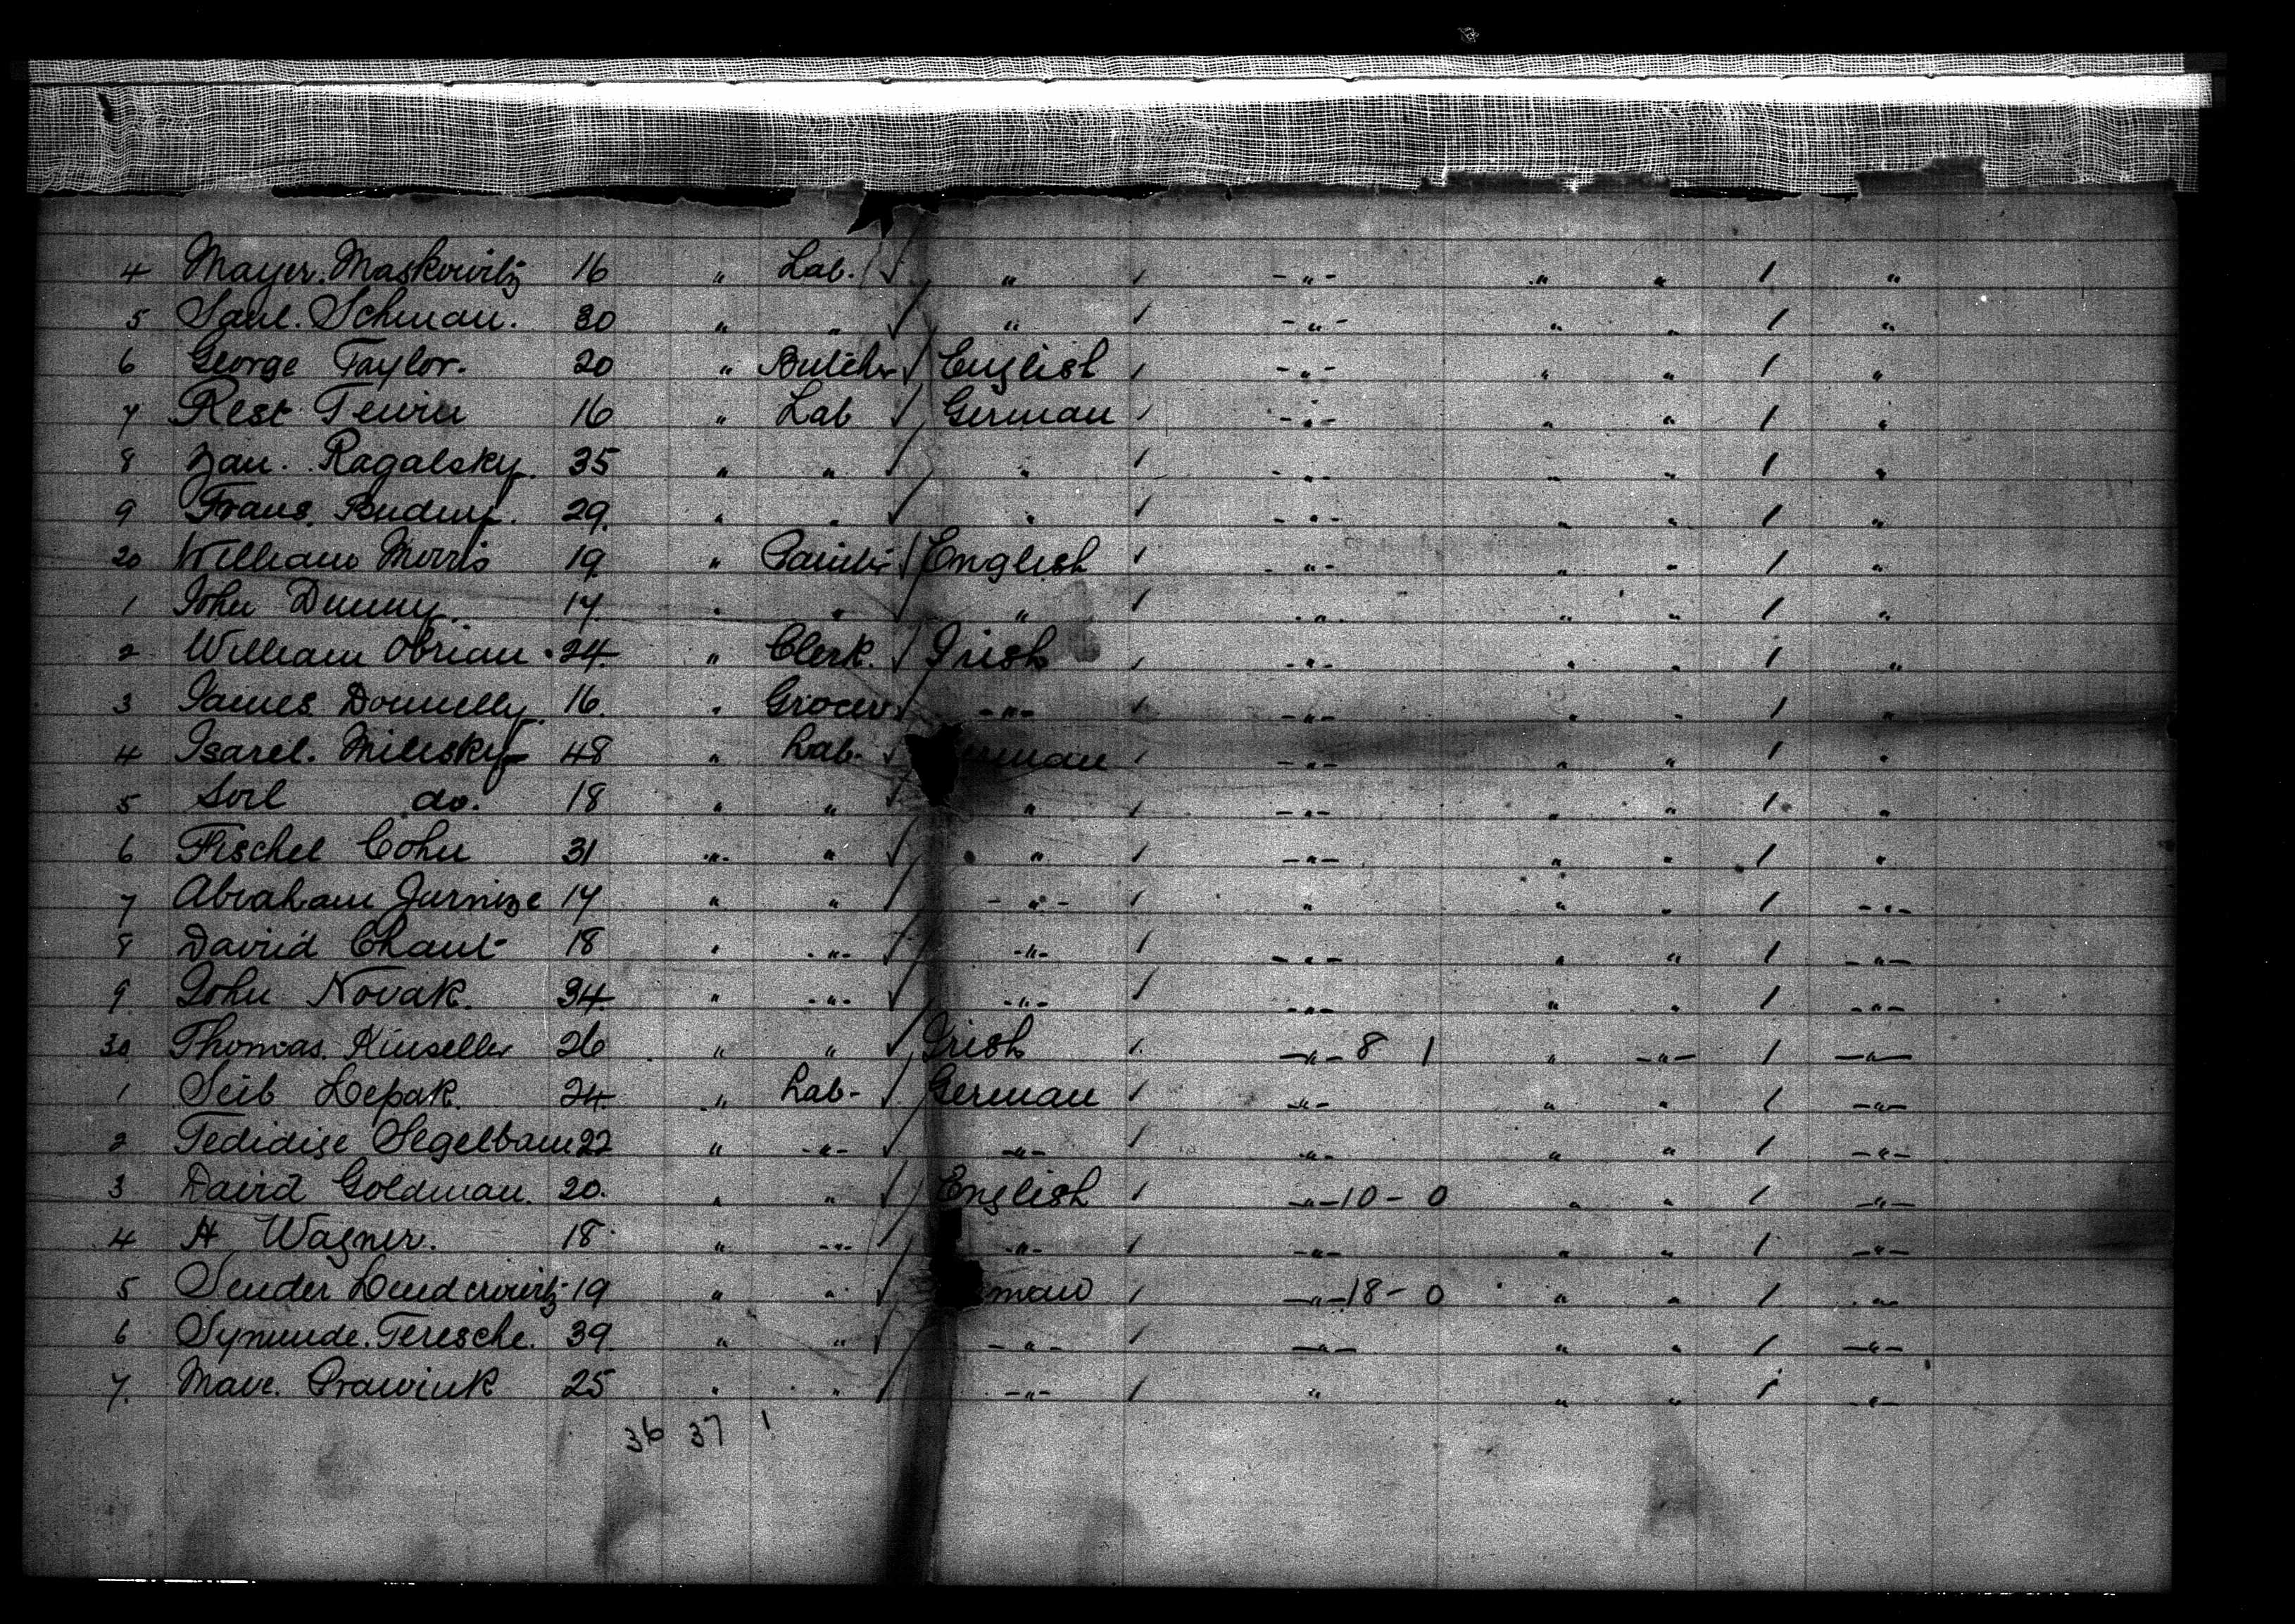 4 Mayer. Maskowitz 16 " Lab. ✓ " / - " - " " 1 "
5 Saul. Schman. 30 " " ✓ " / - " - " " 1 "
6 George Taylor. 20 " Butcher ✓ English / - " - " " 1 "
7 Rest 16 " Lab ✓ German / - " - " " 1 "
8 Ragalsky. 35 " " ✓ " / - " - " " 1 "
9 Frans. 29. " " ✓ " / - " - " " 1 "
20 William Morris 19 " Painter ✓ English / - " - " " 1 "
1 John Denny. 17. " " ✓ " / - " - " " 1 "
2 William Obrian. 24 " Clerk. ✓ Irish / - " - " " 1 "
3 James. Donnelly. 16. " Grocer ✓ - " - / - " - " " 1 "
4 Isarel. Milesky 48 " Lab. ✓ rman / - " - " " 1 "
5 Soil do. 18 " " ✓ " / - " - " " 1 "
6 Fischel Cohn 31 " " ✓ " / - " - " " 1 "
7 Abraham Jurnize 17 " " ✓ - " - / " " " 1 - " -
8 David Chant 18 " - " - ✓ - " - / - " - " " 1 - " -
9 John Novak. 34 " - " - ✓ - " - / - " - " " 1 - " -
30 Thomas. Kinseller 26 " " ✓ Irish / - " - 8 1 " - " - 1 - " -
1 Seib Lepak. 24 " Lab - ✓ German / - " - " " 1 - " -
2 Tedidise Segelbaum 22 " - " - ✓ - " - / - " - " " 1 - " -
3 David Goldman. 20. " " ✓ English / - " - 10 - 0 " " 1 - " -
4 H Wagner. 18 " - " - ✓ - " - / - " - " " 1 - " -
5 Sender 19 " " ✓ man / - " - 18 - 0 " " 1 - " -
6 Symunde. Teresche. 39 " " ✓ - " - / - " - " " 1 - " -
7. Mave. Prawink 25 " " ✓ - " - / " " " 1 - " -
36 37 1